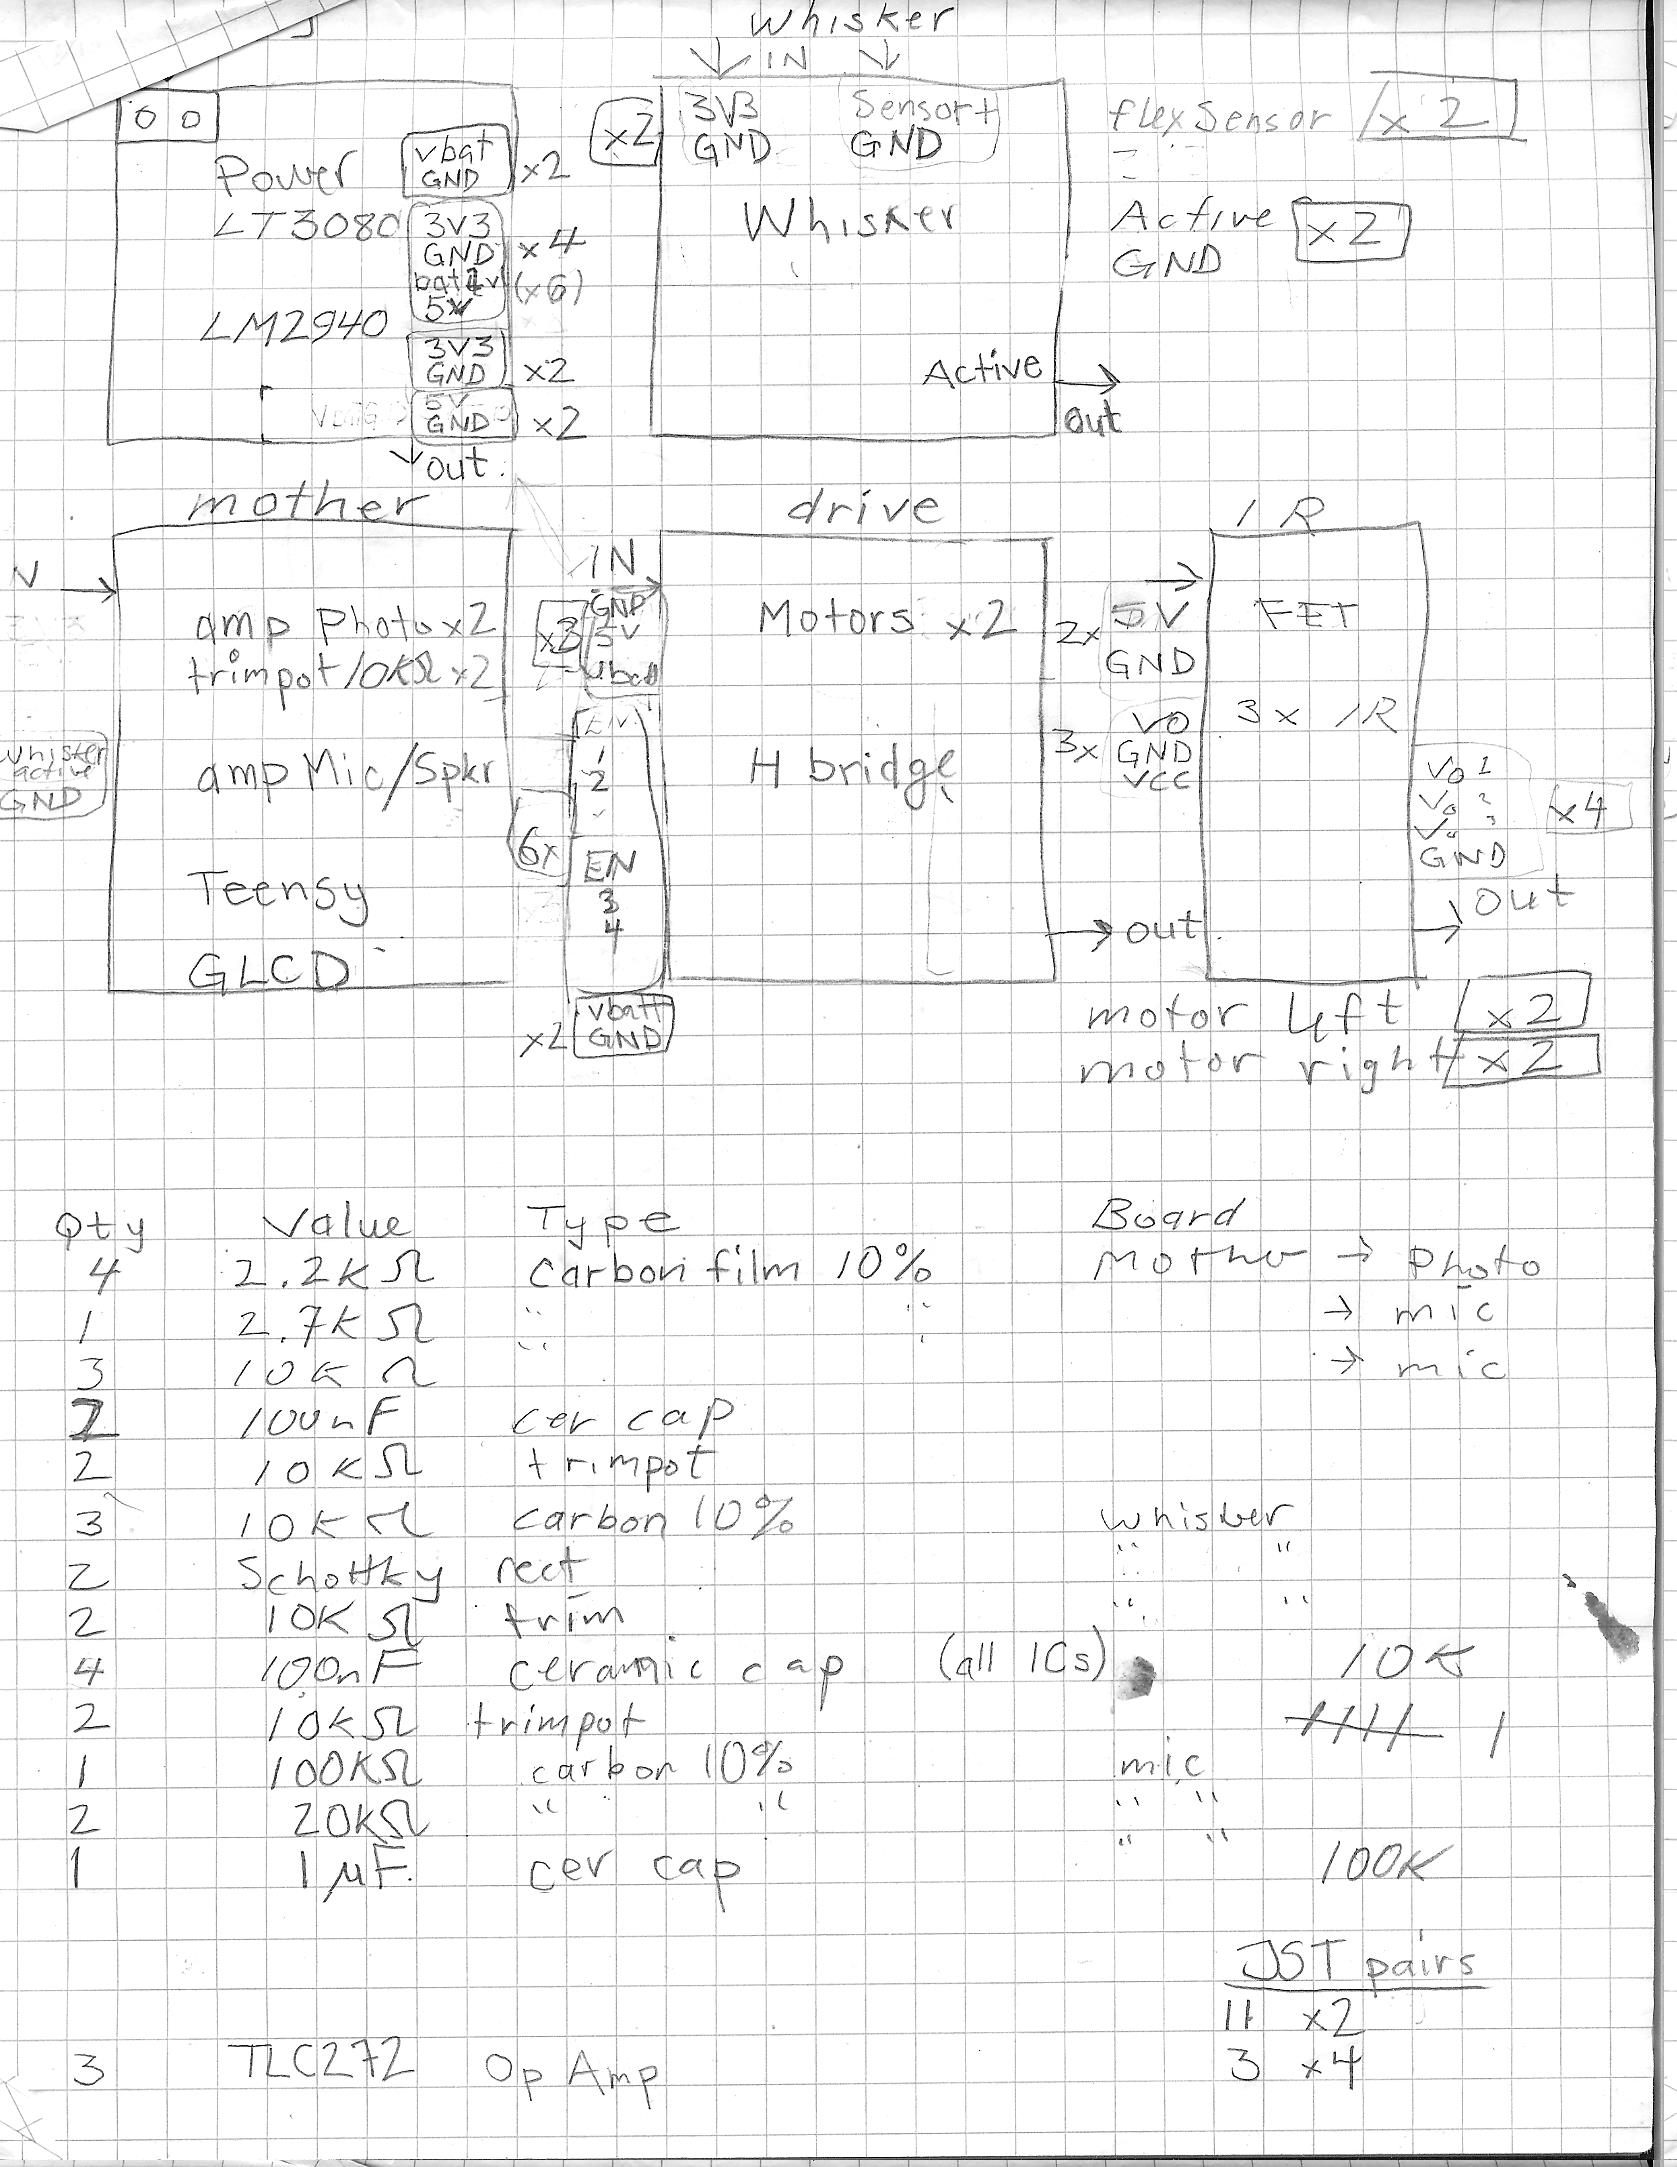 Whisker
IN
0 0
Power
LT3080
LM2940
vbat
GND
x2
3V3
GND
5V
x4
(x6)
3V3
GND
x2
5V
GND
x2
out
x2
3V3
GND
Sensor+
GND
Whisker
Active
out
flex Sensor x2
Active x2
GND
mother
amp Photo x2
trimpot 10KΩ x2
amp Mic/Spkr
Teensy
GLCD
active
GND
drive
IN
GND
5V
x3
EN
1
2
6x
EN
3
4
x2
vbatt
GND
Motors x2
H bridge
out
IR
2x
5V
GND
3x
VO
GND
VCC
FET
3 x IR
Vo 1
Vo 2
Vo 3
GND
x4
out
motor left x2
motor right x2
Qty Value Type Board
4 2.2KΩ Carbon film 10% Mother → Photo
1 2.7KΩ " " → mic
3 10KΩ " → mic
100nF cer cap
2 10KΩ trimpot
3 10KΩ carbon 10% Whisker
2 Schottky rect " "
2 10KΩ trim " "
4 100nF ceramic cap (all ICs) 10K
2 10KΩ trimpot
1 100KΩ carbon 10% mic
2 20KΩ " " " "
1 1μF cer cap " " 100K
JST pairs
11 x2
3 x4
3 TLC272 Op Amp